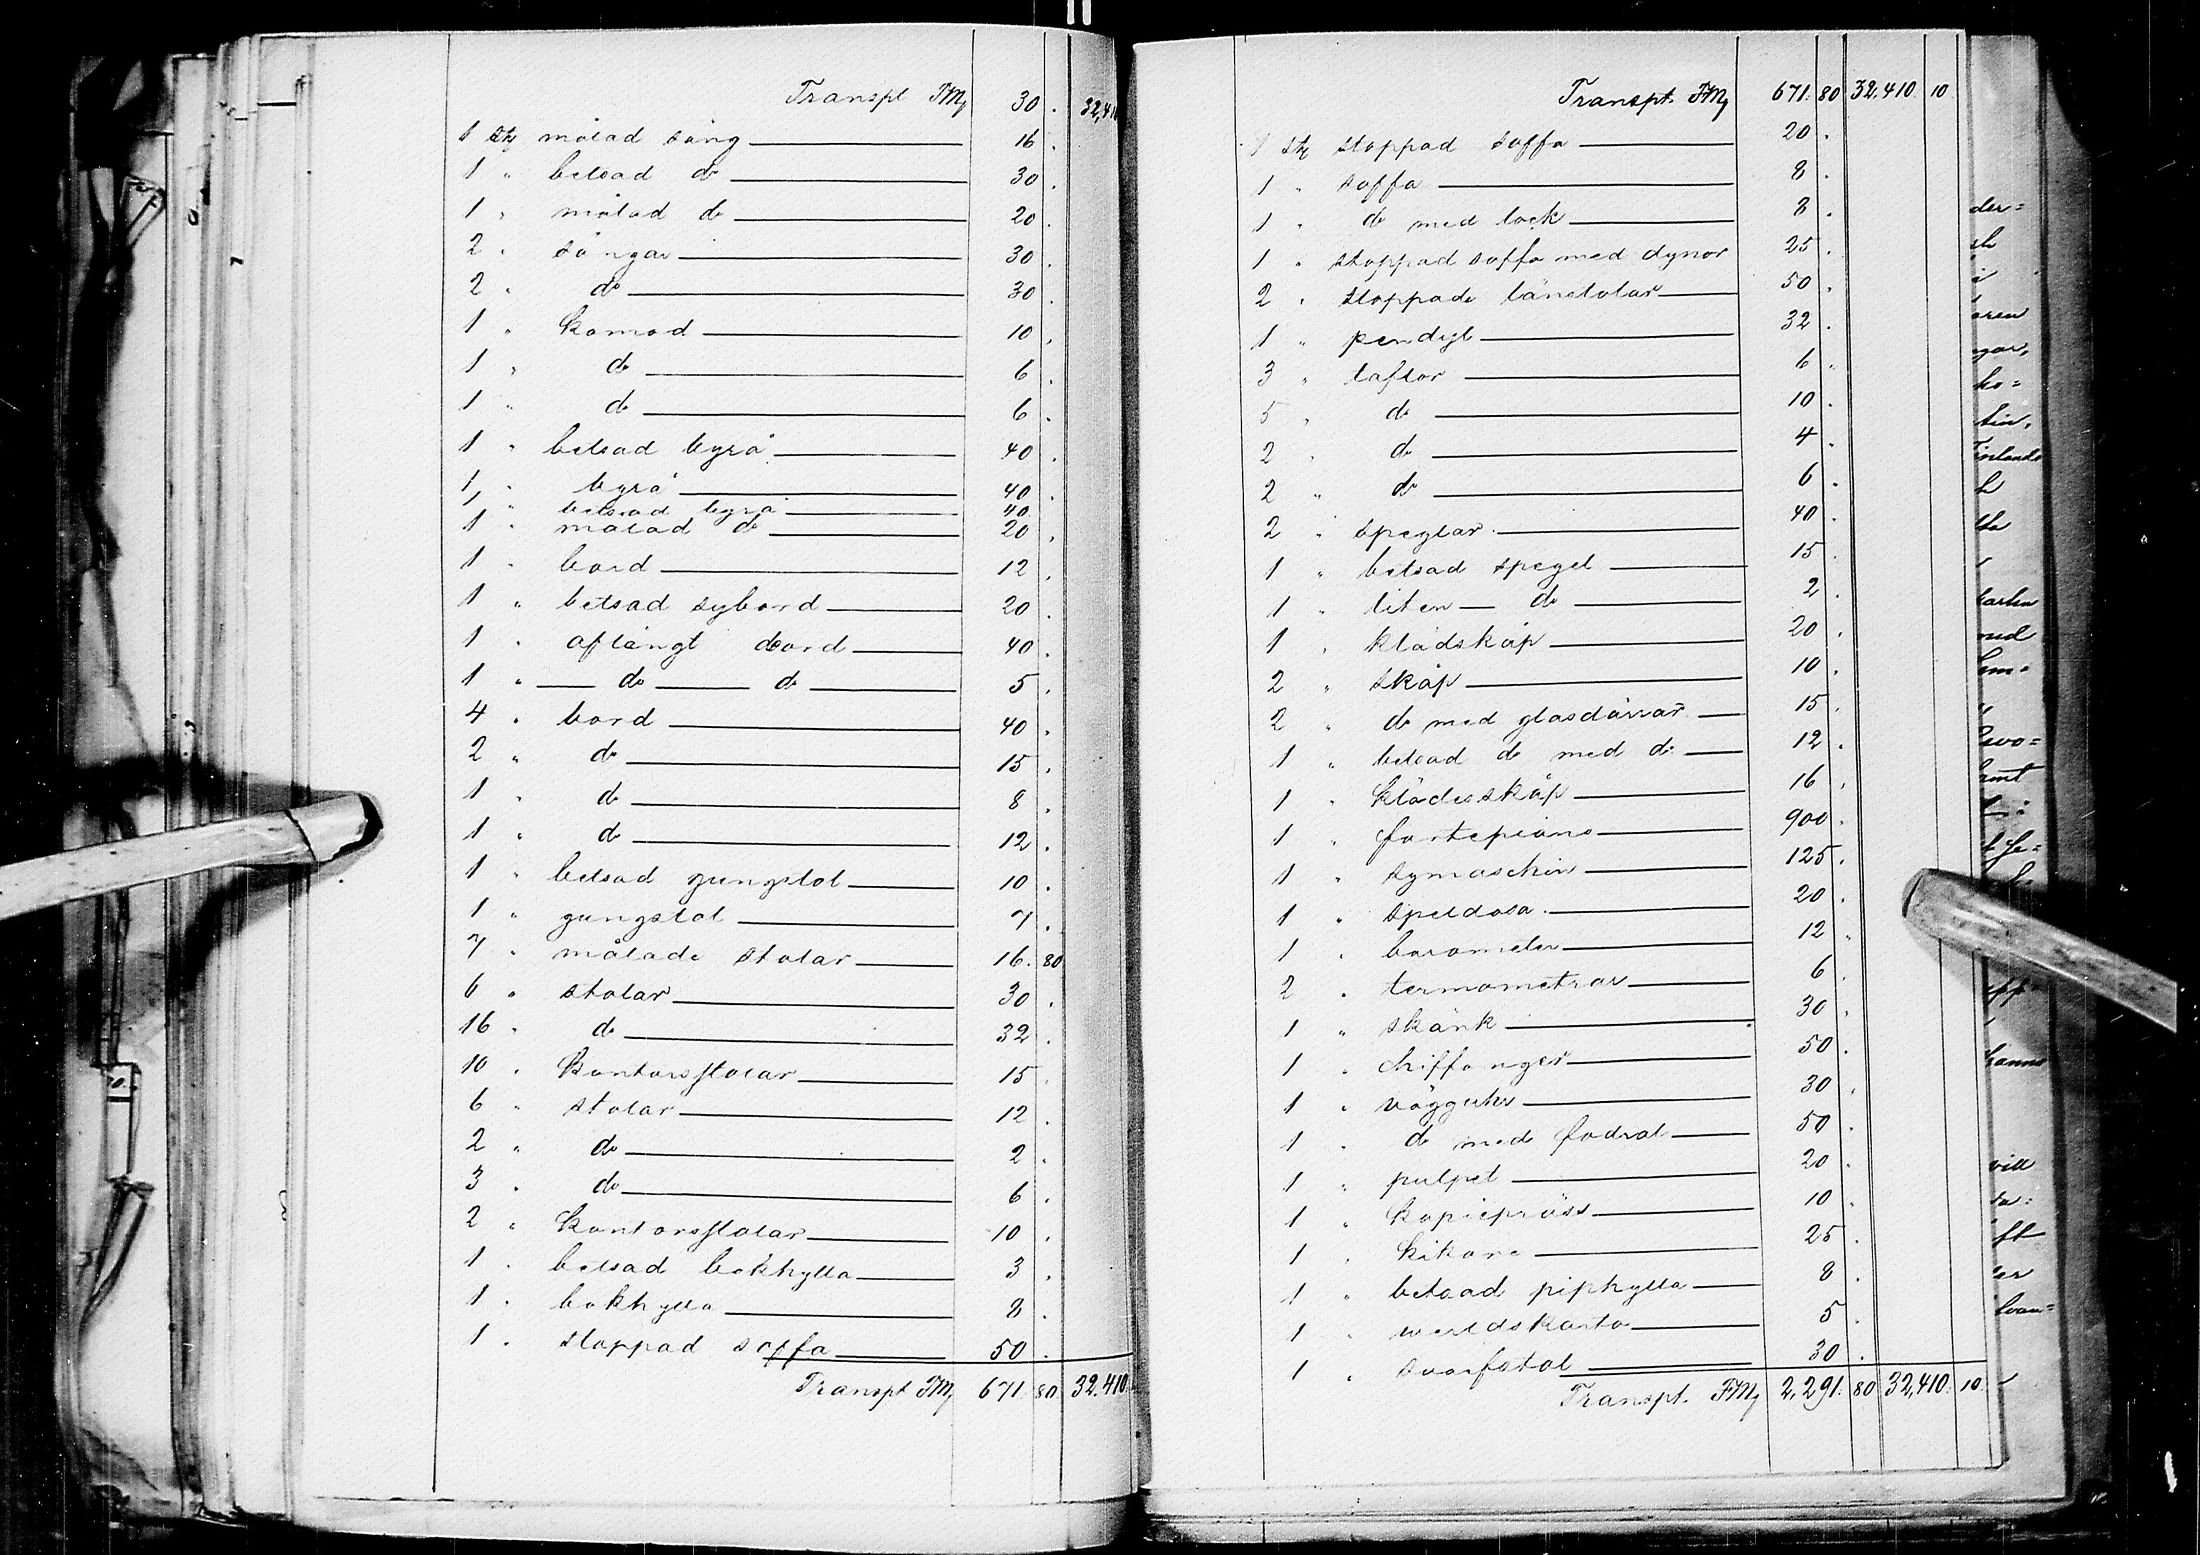 Transpt FMj 30 . 32,410
1 stk målad säng 16 .
1 " betsad do 30 .
1 " målad do 20 .
2 " sängar 30 .
2 " do 30 .
1 " komod 10 .
1 " do 6 .
1 " do 6 .
1 " betsad byrå 40 .
1 " byrå 40 .
1 " betsad byrå 40
1 " målad do 20 .
1 " bord 12 .
1 " betsad sybord 20 .
1 " aflångt bord 40 .
1 " do do 5 .
4 " bord 40 .
2 " do 15 .
1 " do 8 .
1 " do 12 .
1 " betsad gungstol 10 .
1 " gungstol 7 .
7 " målade stolar 16. 80
6 " stolar 30 .
16 " do 32 .
10 " kontorsstolar 15 .
6 " stolar 12 .
2 " do 2 .
3 " do 6 .
2 " kontorsstolar 10 .
1 " betsad bokhylla 3 .
1 " bokhylla 8 .
1 " stoppad soffa 50 .
Transpt FMj 671. 80. 32.410.
Transpt. FMj 671. 80 32.410. 10
1 stk stoppad soffa 20 .
1 " soffa 8 .
1 " do med lock 8 .
1 " stoppad soffa med dynor 25 .
2 " stoppade länstolar 50 .
1 " pendyl 32 .
3 " taflor 6 .
5 " do 10 .
2 " do 4 .
2 " do 6 .
2 " speglar 40 .
1 " betsad spegel 15 .
1 " liten do 2 .
1 " klädskåp 20 .
2 " skåp 10 .
2 " do med glasdörrar 15 .
1 " betsad do med do 12 .
1 " klädesskåp 16 .
1 " fortepiano 900 .
1 " symaschin 125 .
1 " speldosa 20 .
1 " barometer 12 .
2 " termometrar 6 .
1 " skänk 30 .
1 " chiffonger 50 .
1 " vägguhr 30 .
1 " do med fodral 50 .
1 " pulpet 20 .
1 " kopiepräss 10 .
1 " kikare 25 .
1 " betsad piphylla 8 .
1 " werldskarta 5 .
1 " svarfstol 30 .
Transpt. FMj 2,291. 80 32,410. 10